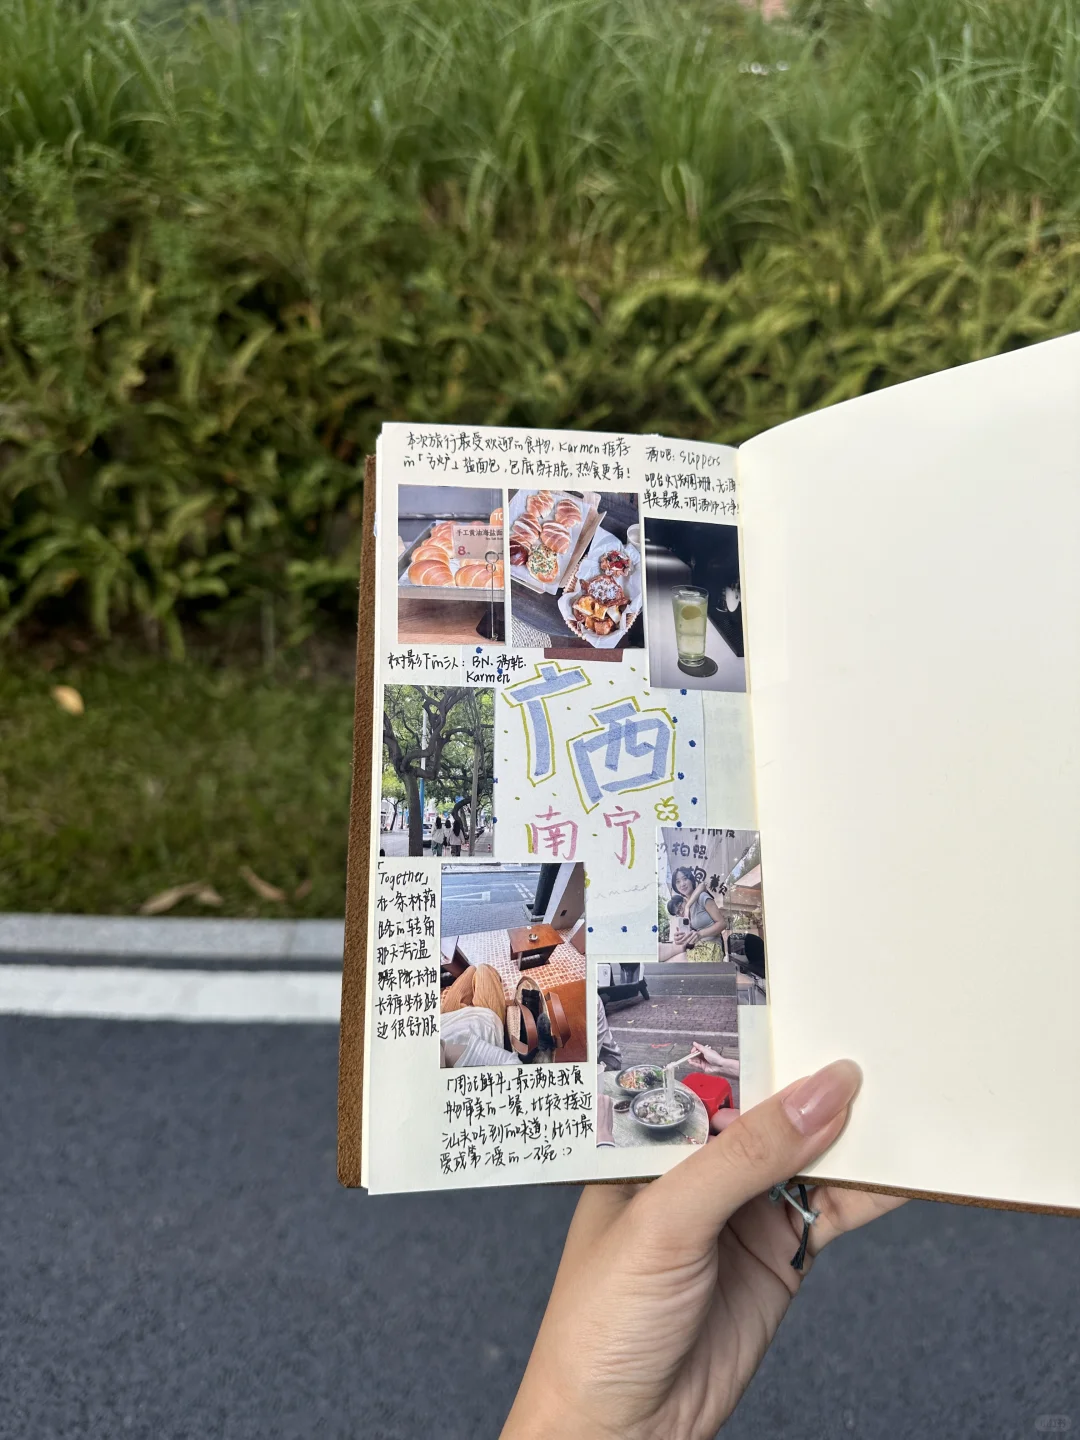 本次旅行最受欢迎的食物，Karmen推荐
的「方炉」盐面包，包底酥脆，热食更香！
酒吧：Slippers
手工黄油海盐面
8
树影下的三人：BN、涡轮、
Karmen
广西
南宁
拍照
「Together」
在一条林荫
路的转角
那天有温
长裤坐在路
边很舒服
「周记鲜牛」最满足我食
物审美的一餐，比较接近
汕头吃到的味道！此行最
爱或第二爱的一碗 :)
小红书